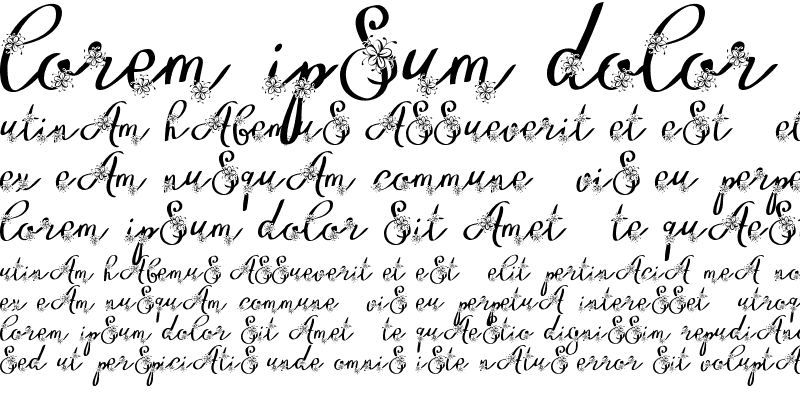 lorem ipSum dolor
utinAm hAbemuS ASSueverit et eSt el
ex eAm nuSquAm commune viS eu perpe
lorem ipSum dolor Sit Amet te quAeS
utinAm hAbemuS ASSueverit et eSt elit pertinAciA meA no
ex eAm nuSquAm commune viS eu perpetuA intereSSet utroq
lorem ipSum dolor Sit Amet te quAeStio digniSSim repudiAn
Sed ut perSpiciAtiS unde omniS iSte nAtuS error Sit voluptA